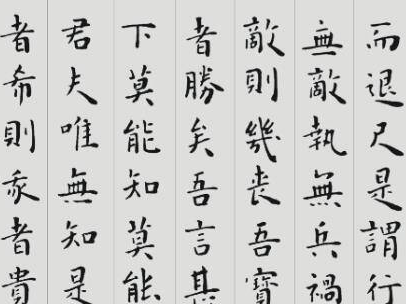 而退尺是謂行
無敵執無兵禍
敵則幾喪吾寶
者勝矣吾言甚
下莫能知莫能
君夫唯無知是
者希則我者貴